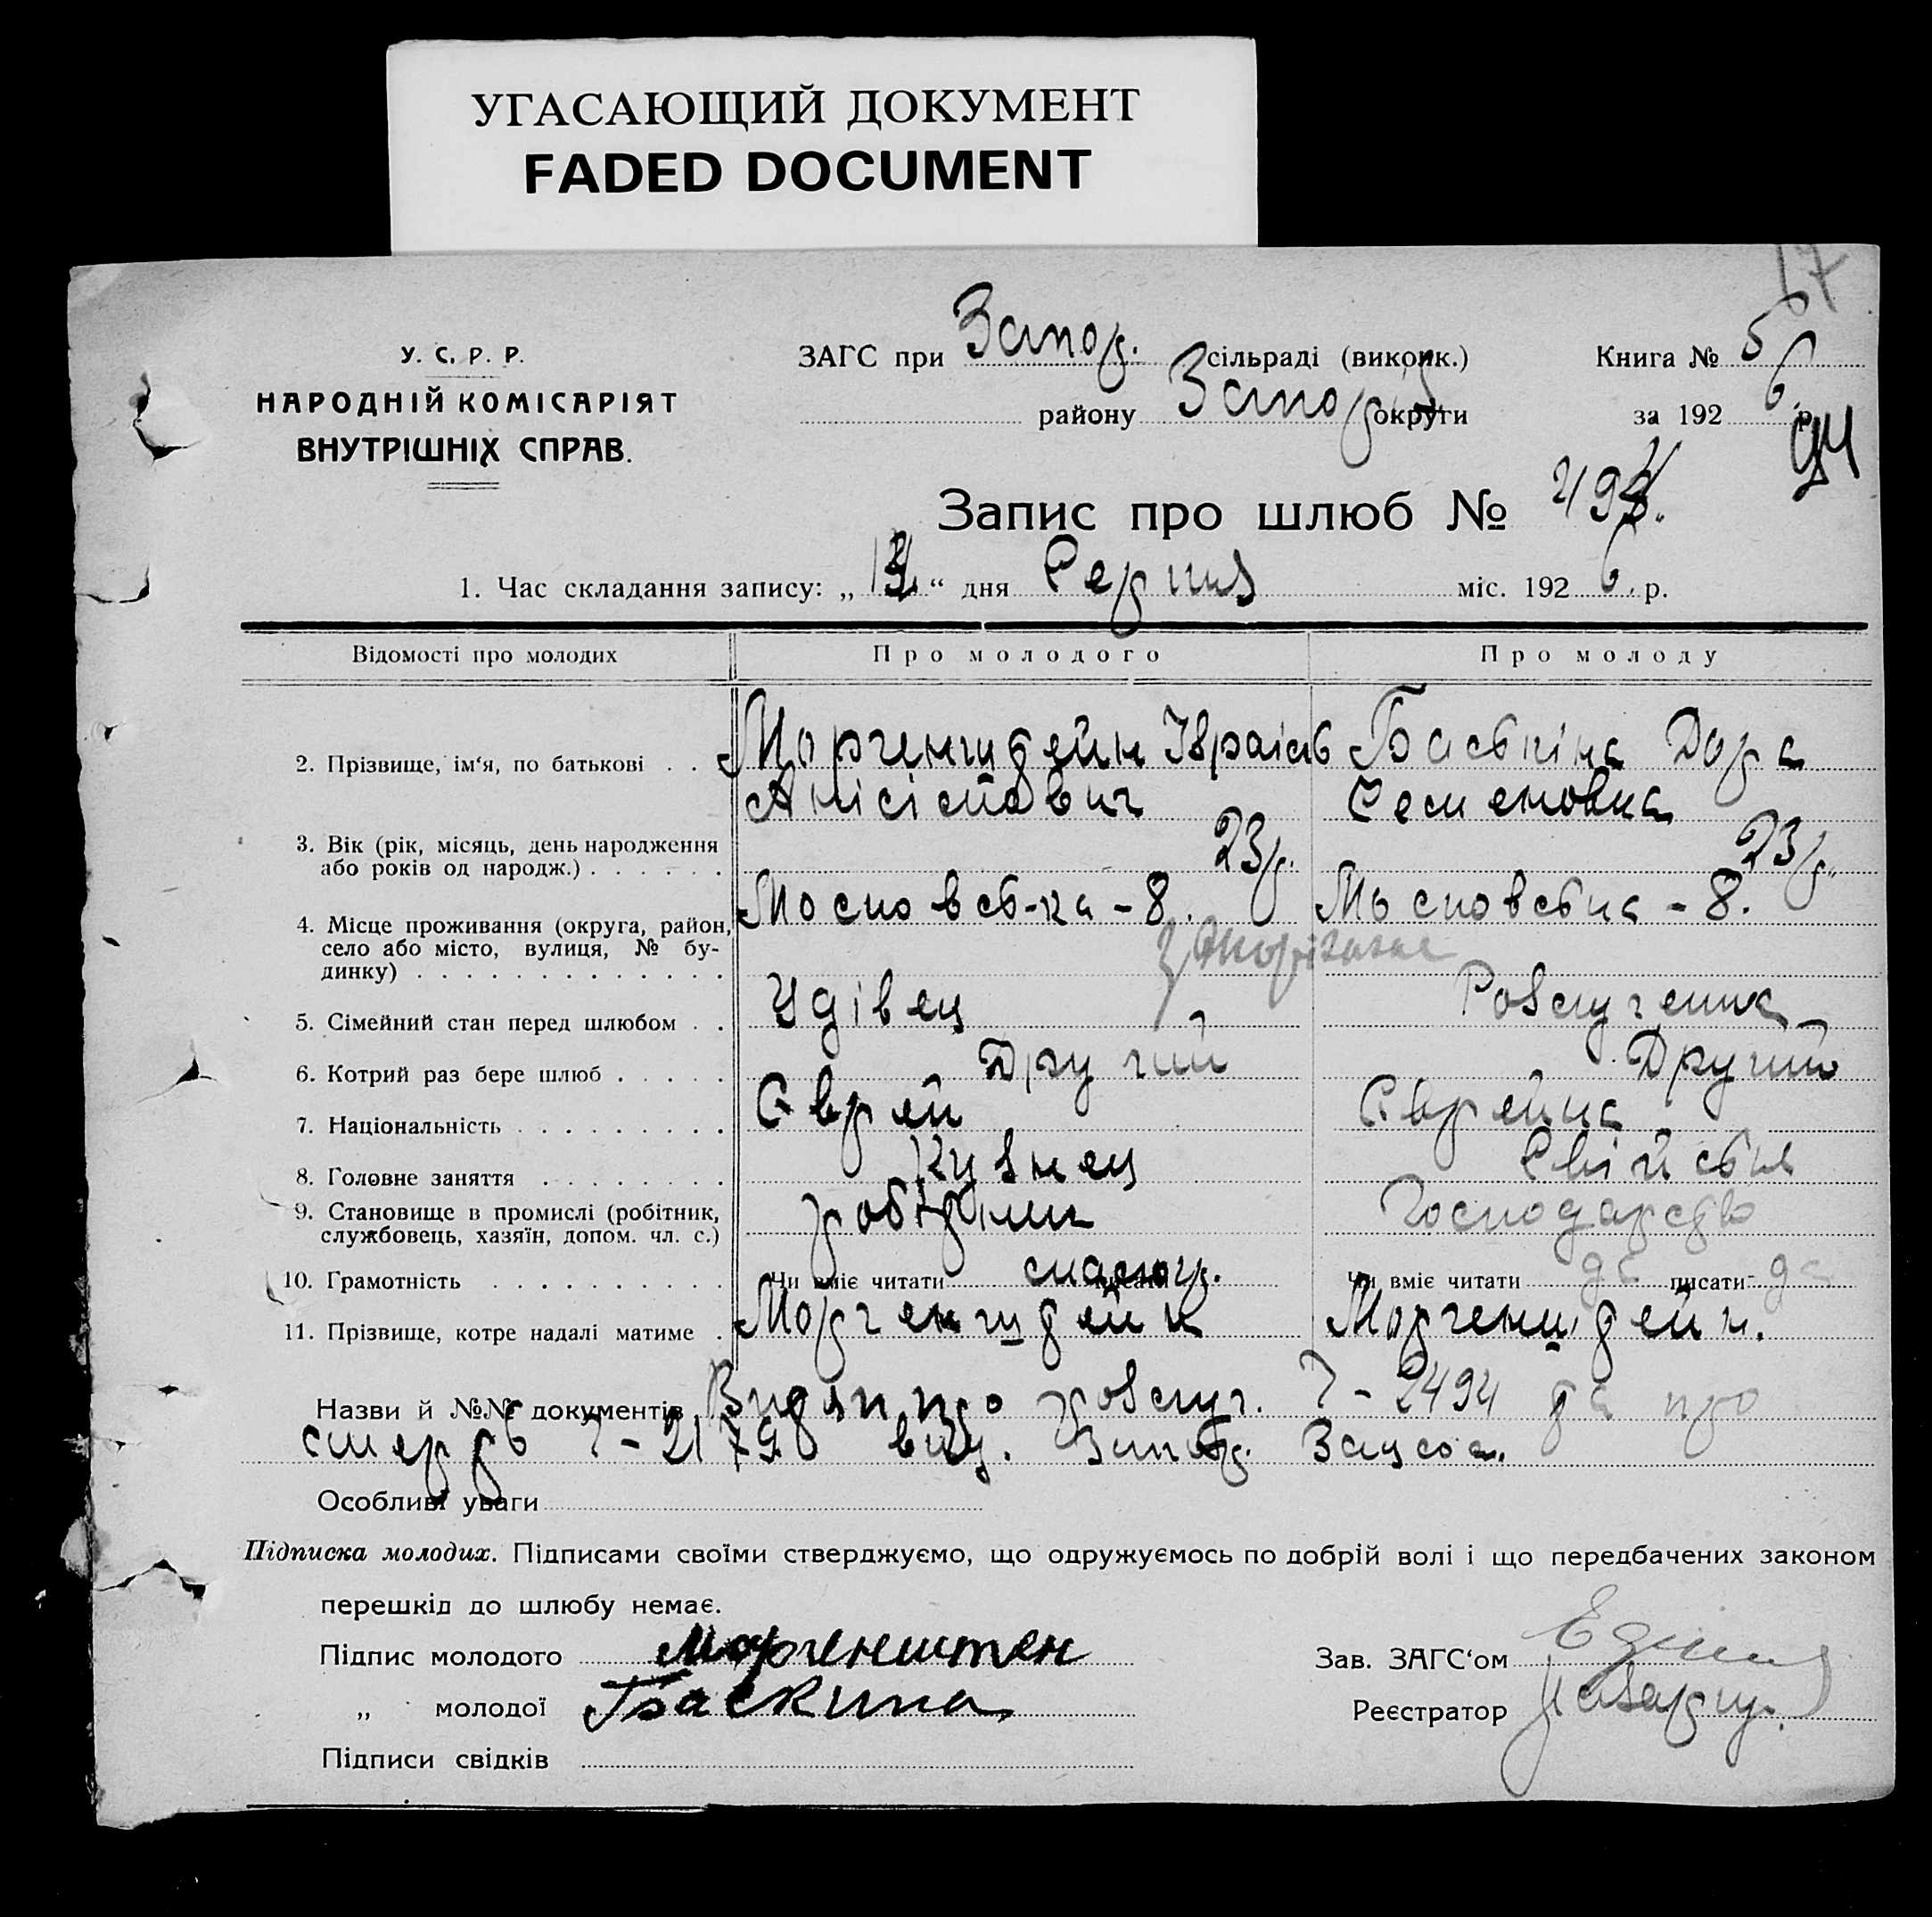 УГАСАЮЩИЙ ДОКУМЕНТ
FADED DOCUMENT
17
У. С. Р. Р.
НАРОДНІЙ КОМІСАРІЯТ
ВНУТРІШНІХ СПРАВ.
ЗАГС при Запор. сільраді (виконк.)
району Запоріз округи
Книга № 5
за 192 6 р.
Запис про шлюб №
1. Час складання запису: „ “ дня Серпня міс. 192 6. р.
Відомості про молодих Про молодого Про молоду
2. Прізвище, ім‘я, по батькові . . Моргенштейн Ізраіль Баськіна Дора
Анісімович Семеновна
3. Вік (рік, місяць, день народження
або років од народж.) . . . . . . 23 р. 23 р.
4. Місце проживання (округа, район,
село або місто, вулиця, № бу-
динку) . . . . . . . . . . . . . Московсь-ка - 8. Московська - 8.
5. Сімейний стан перед шлюбом . . Удівец Розлучена
6. Котрий раз бере шлюб . . . . . Другий Другий
7. Національність . . . . . . . . . Єврей Єврейка
8. Головне заняття . . . . . . . . Кузнец
9. Становище в промислі (робітник,
службовець, хазяїн, допом. чл. с.) робітник Господарство
10. Грамотність . . . . . . . . . . Чи вміє читати Чи вміє читати да писати да
11. Прізвище, котре надалі матиме . Моргенштейн Моргенштейн.
Назви й №№ документів Витяг про розлуч. Ч - 2494 та про
смерть Ч - 2179 вид. Запор. Загсом.
Особливі уваги
Підписка молодих. Підписами своїми стверджуємо, що одружуємось по добрій волі і що передбачених законом
перешкід до шлюбу немає.
Підпис молодого Моргенштен
„ молодої Баскина
Підписи свідків
Зав. ЗАГС‘ом
Реєстратор